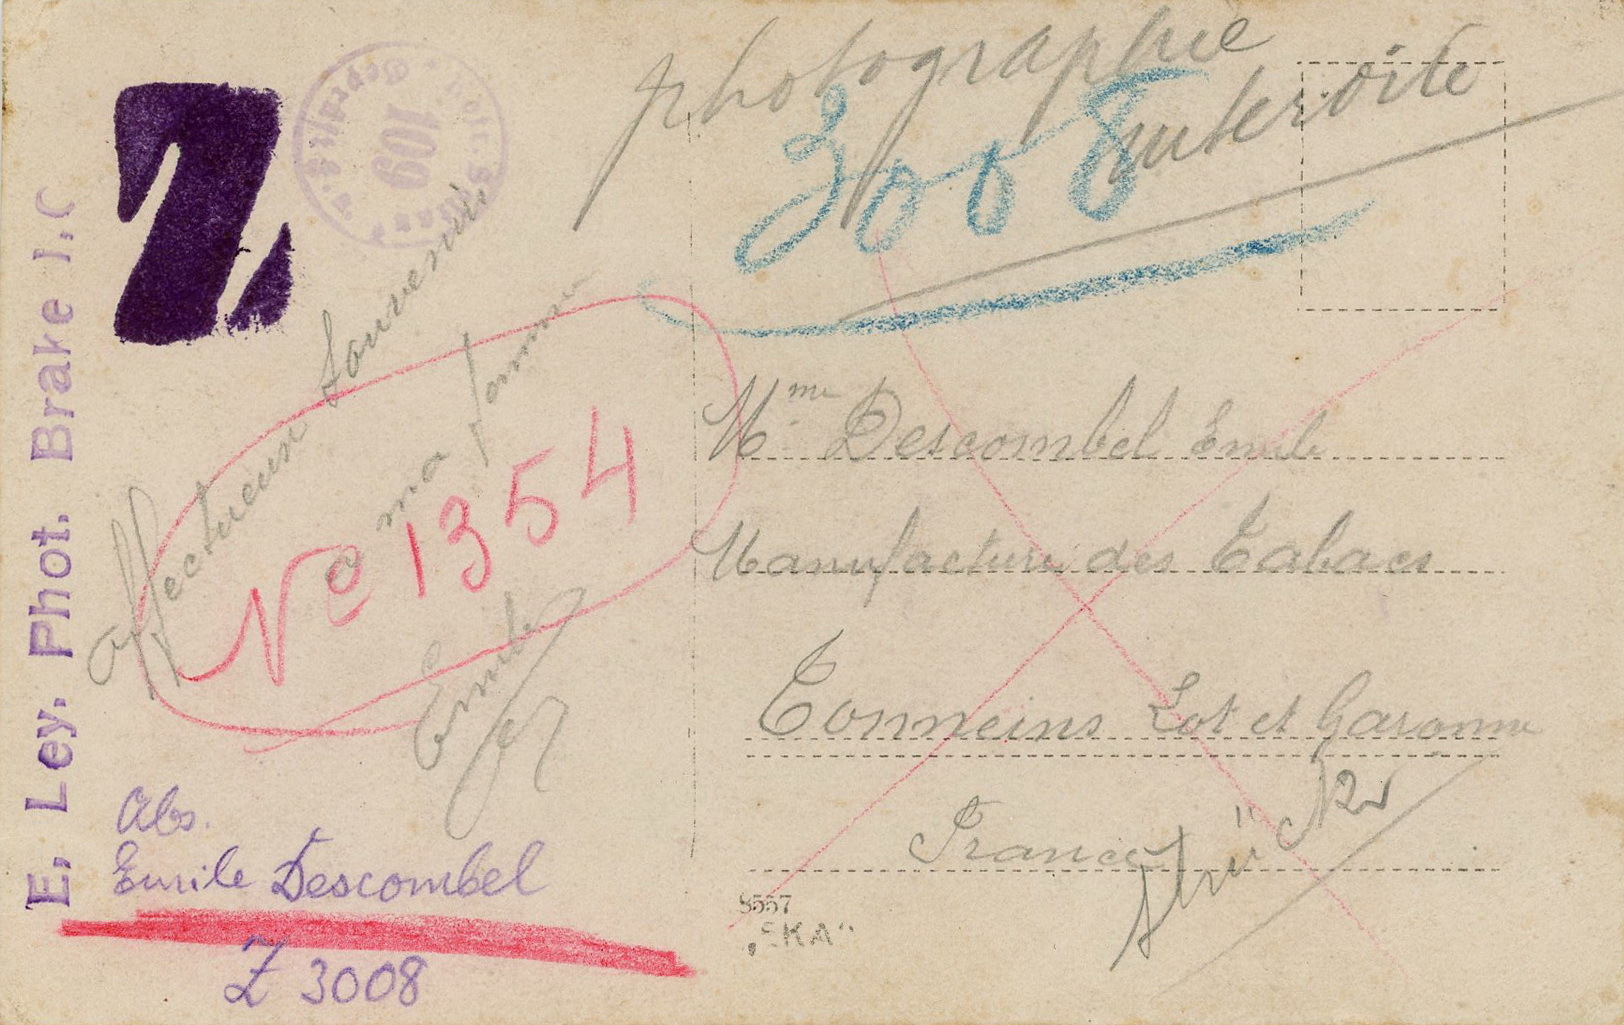 photographie
interdite
3008
Z
109
E. Ley. Phot. Brake I.
affectueux Souvenir
a ma femme
Emile
No 1354
Mme Descombel Emile
Manufacture des Tabacs
Tonneins Lot et Garonne
France
Abs.
Emile Descombel
Z 3008
8557
„SKA"